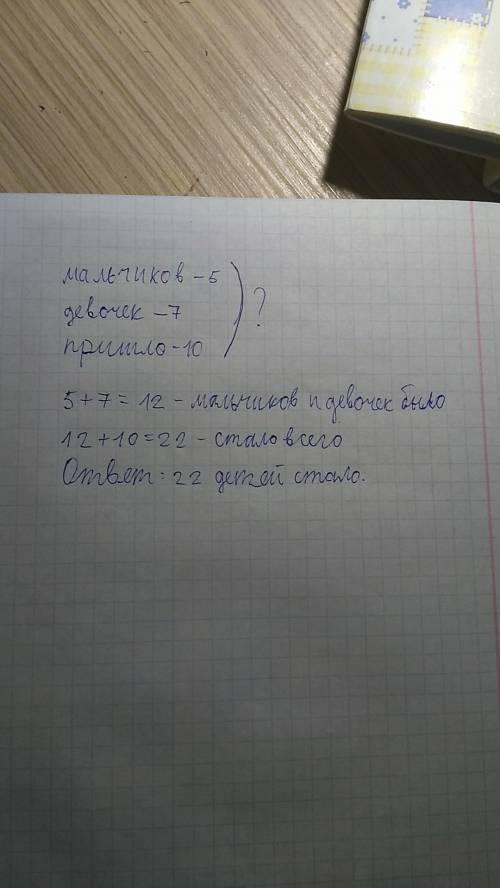 мальчиков - 5
девочек - 7
пришло - 10
?
5 + 7 = 12 - мальчиков и девочек было
12 + 10 = 22 - стало всего
Ответ: 22 детей стало.